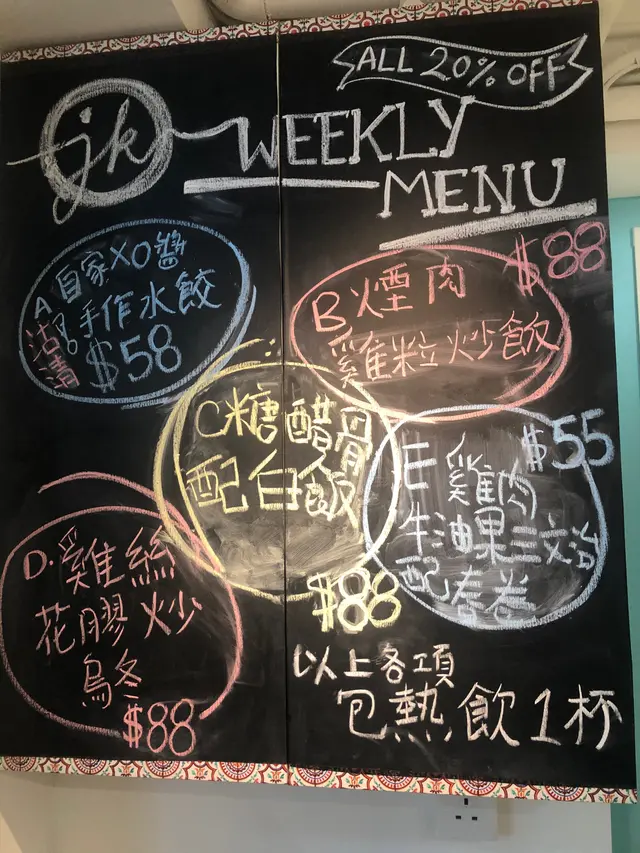 ALL 20% OFF
jk
WEEKLY
MENU
A 自家XO醬
手作水餃
$58
沽清
B 煙肉
雞粒炒飯
$88
C 糖醋骨
配白飯
$88
D. 雞絲
花膠炒
烏冬
$88
E 雞肉
牛油果三文治
配春卷
$55
以上各項
包熱飲1杯